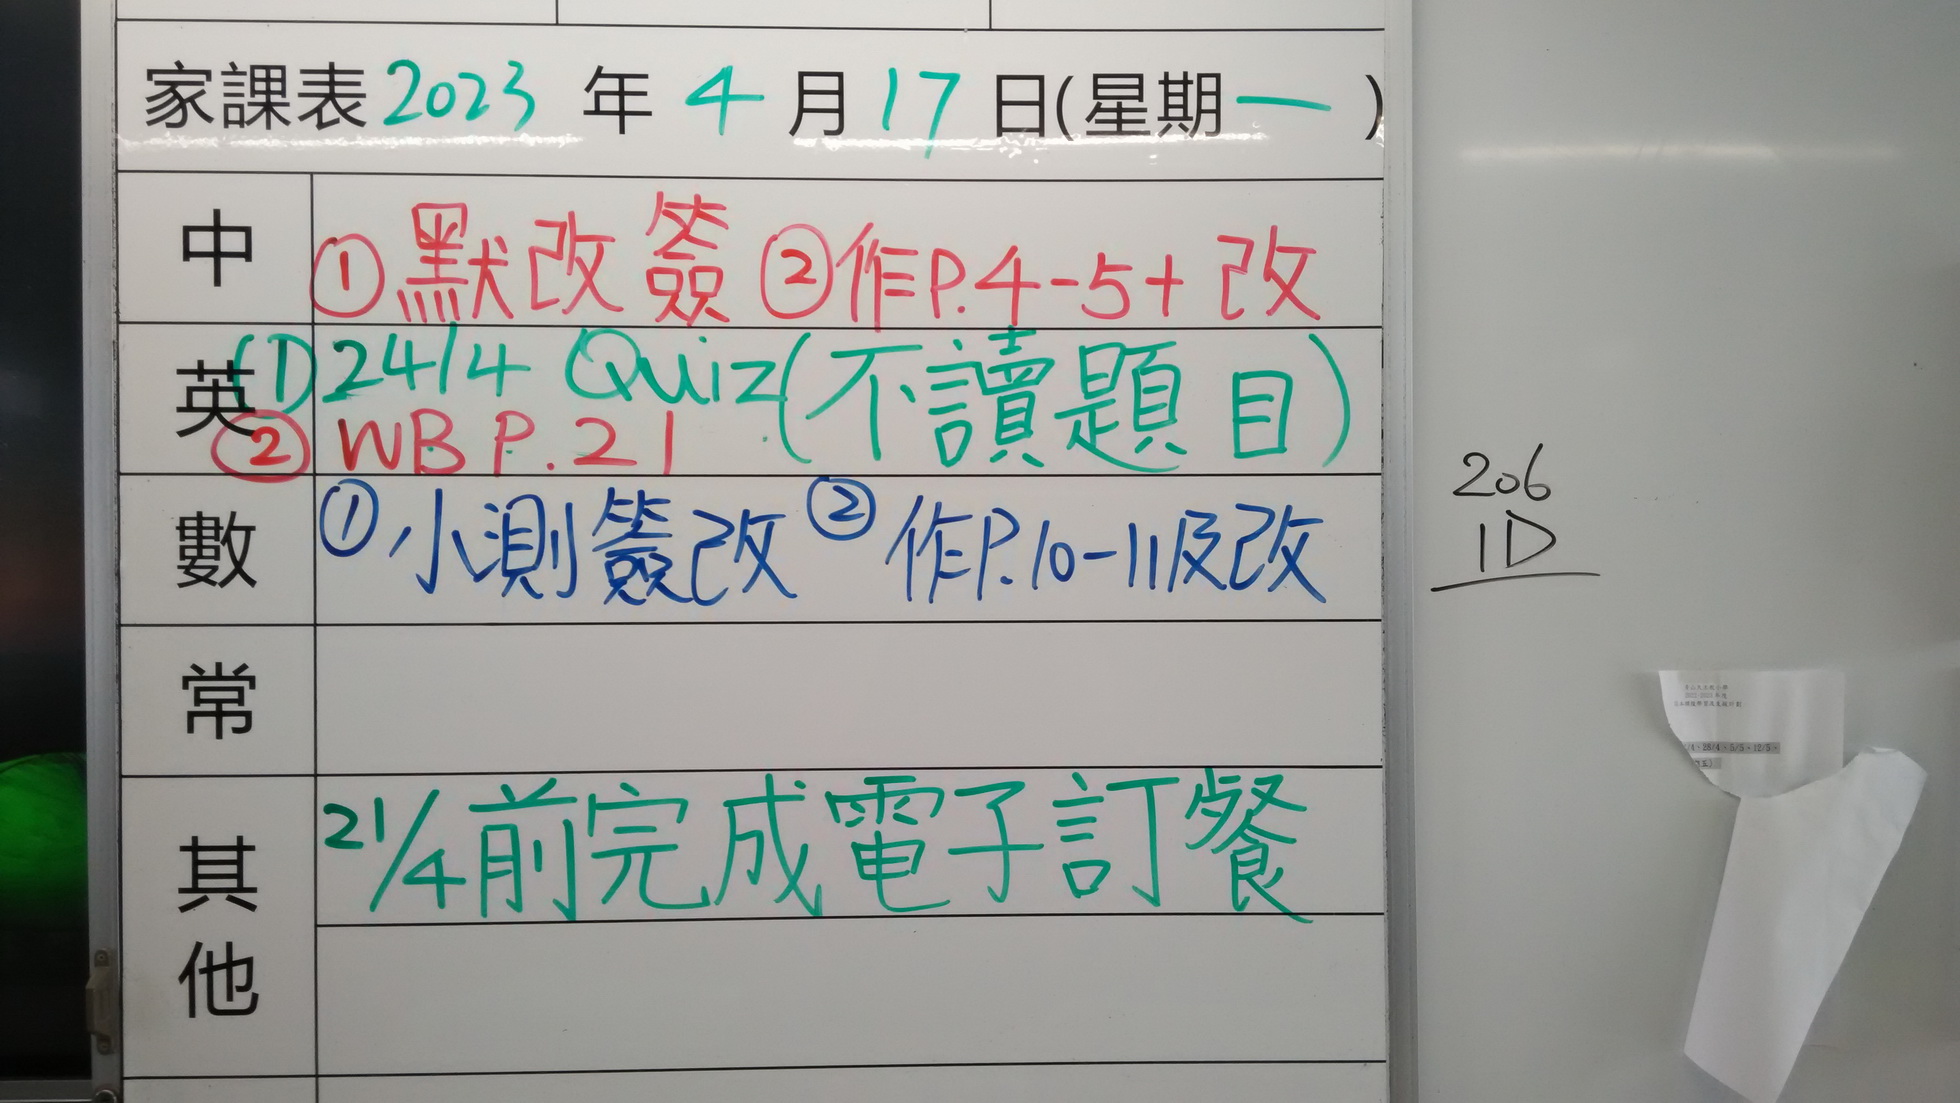 家課表 2023 年 4 月 17 日(星期一)
中 ①默改簽 ②作P.4-5+改
英 (1) 24/4 Quiz (不讀題目)
② WB P.21
數 ①小測簽改 ②作P.10-11及改
常
其他 21/4前完成電子訂餐
206
1D
2022-2023年度
28/4、5/5、12/5、